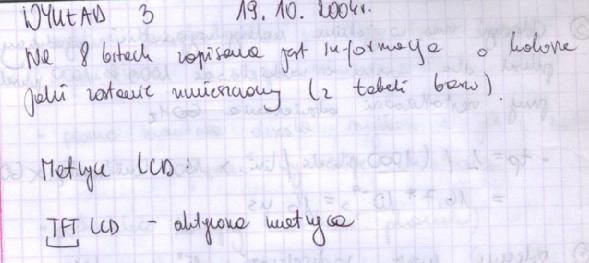 WYKŁAD 3 19.10.2004r.
Na 8 bitach zapisana jest informacja o kolorze
jaki zostanie umieszczony (z tabeli barw).
Matryce LCD:
TFT LCD - aktywna matryca